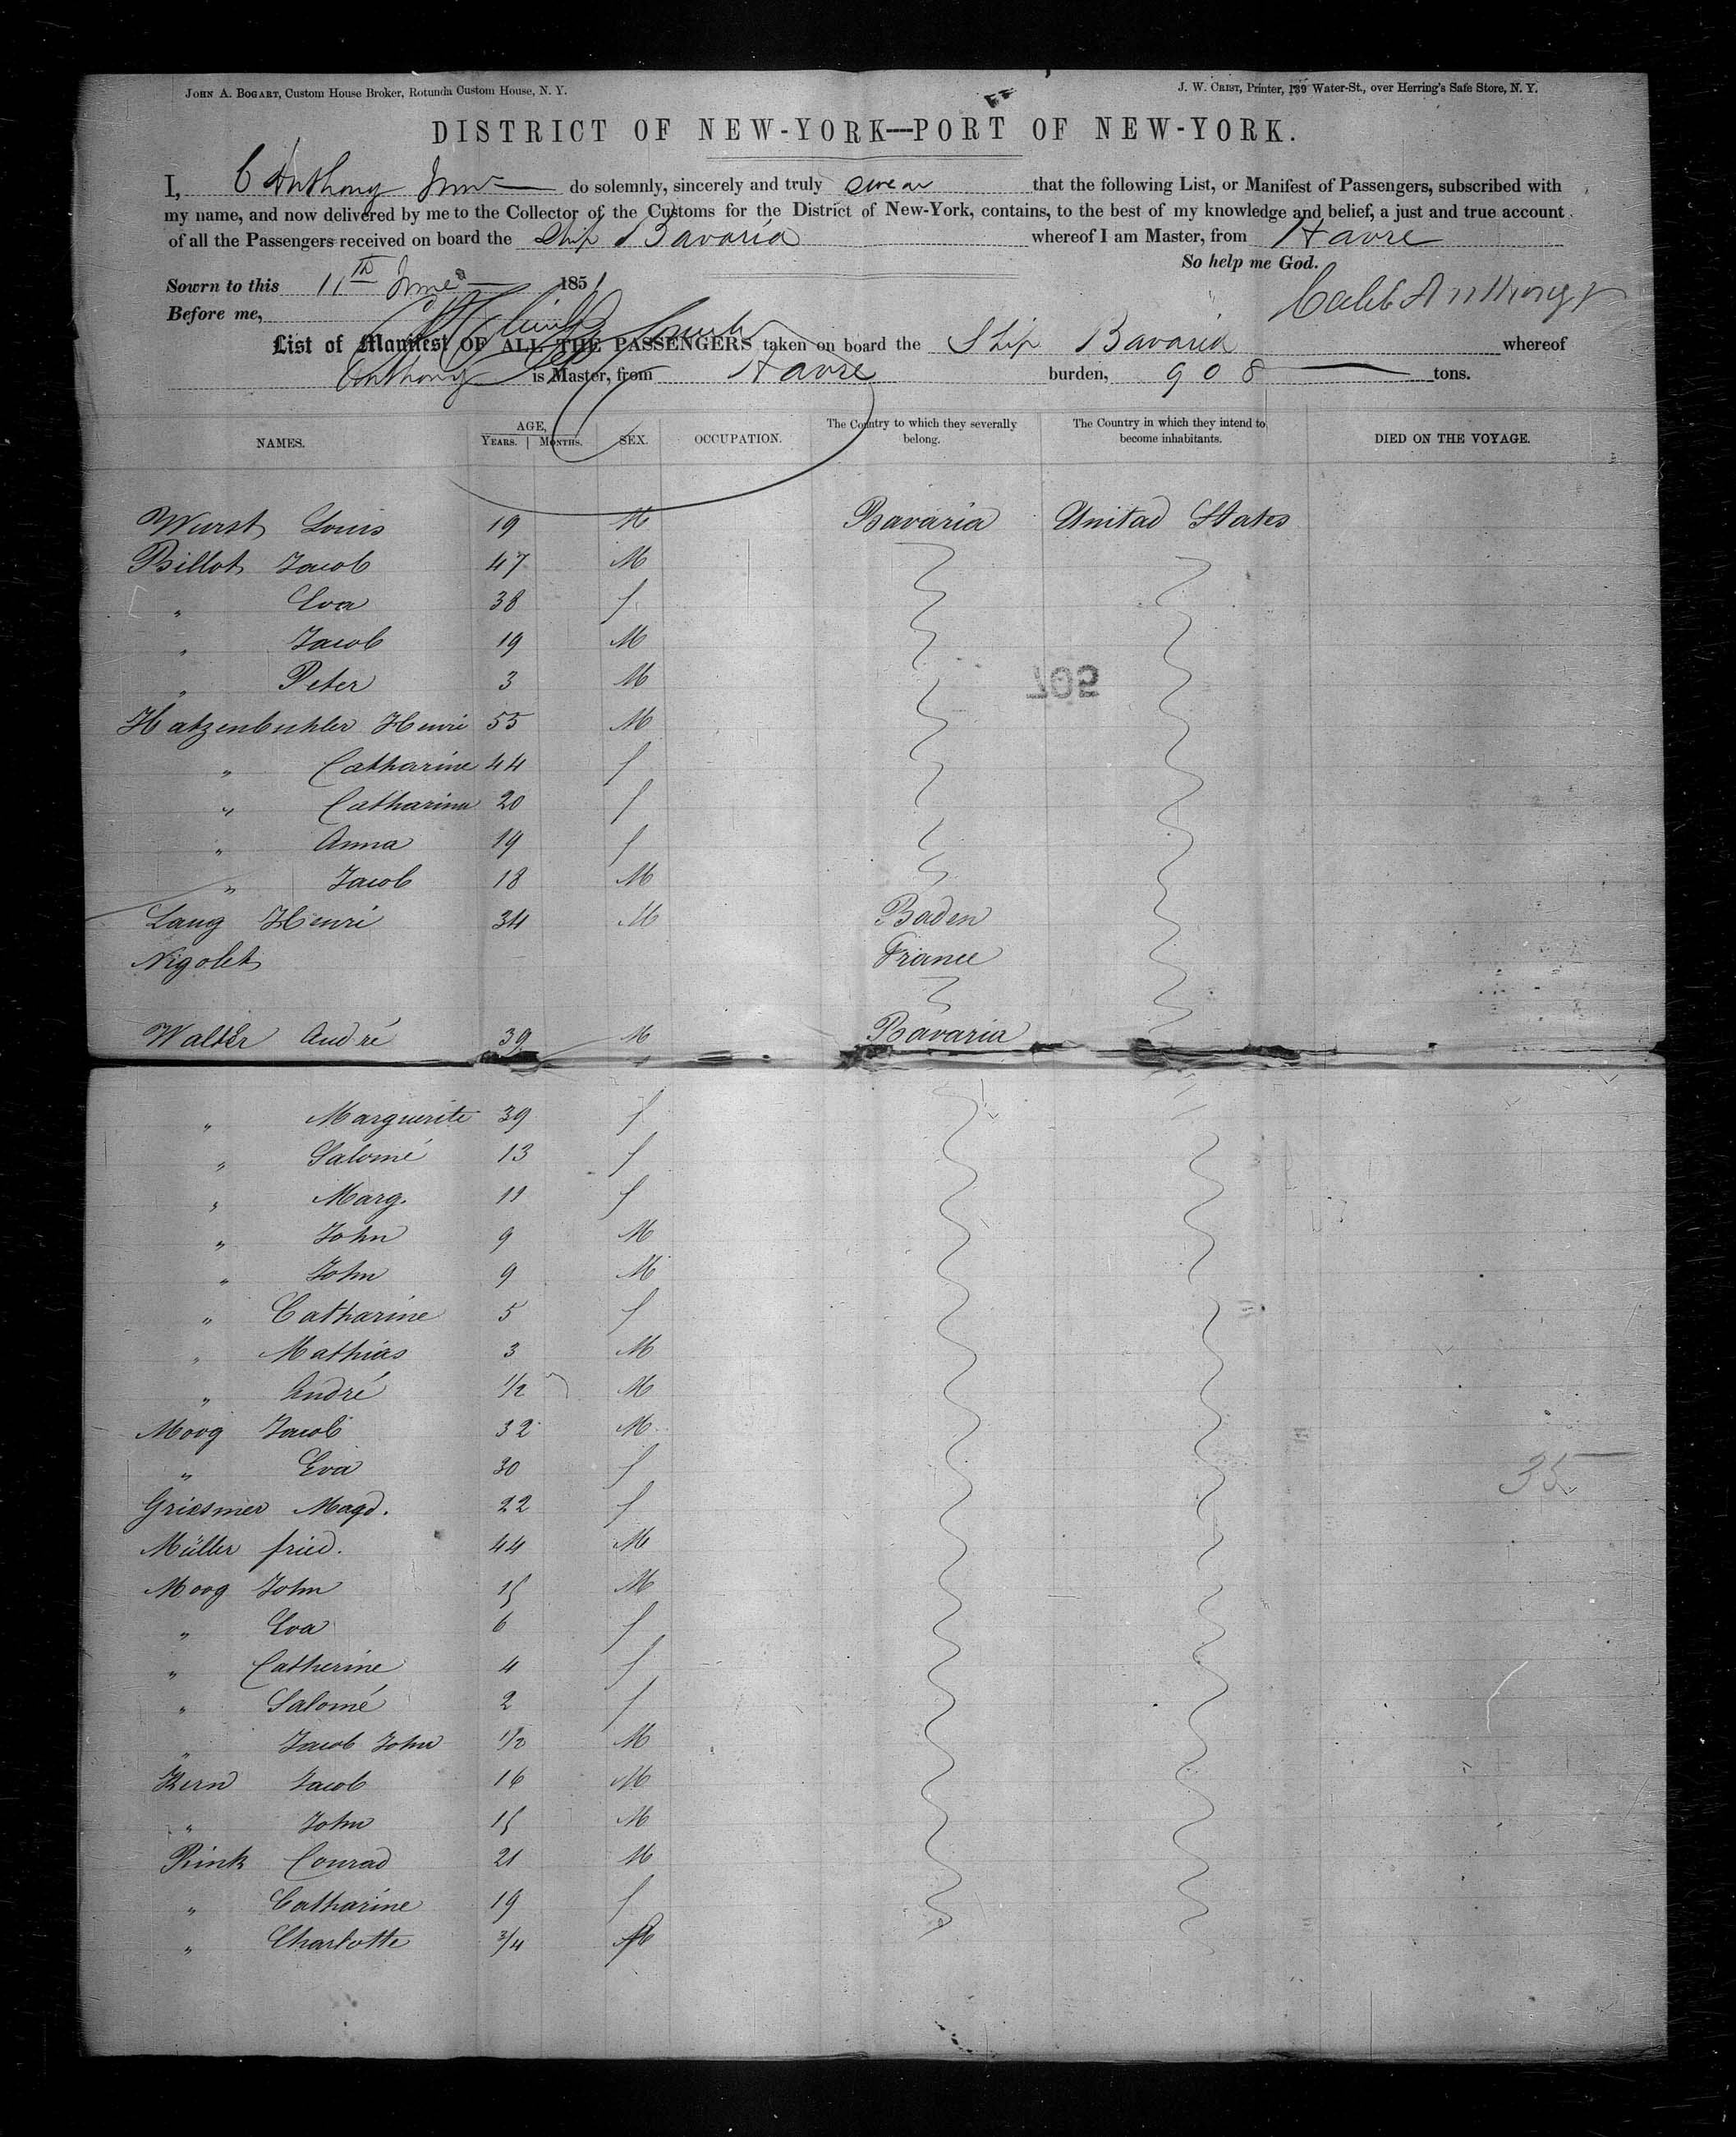 JOHN A. BOGART, Custom House Broker, Rotunda Custom House, N. Y.
J. W. CRIST, Printer, 139 Water-St., over Herring's Safe Store, N. Y.
DISTRICT OF NEW-YORK—PORT OF NEW-YORK.
I, C Anthony Junr do solemnly, sincerely and truly swear that the following List, or Manifest of Passengers, subscribed with
my name, and now delivered by me to the Collector of the Customs for the District of New-York, contains, to the best of my knowledge and belief, a just and true account
of all the Passengers received on board the Ship Bavaria whereof I am Master, from Havre
So help me God.
Sowrn to this 11th June 1851
Caleb Anthony Jr
Before me,
List of Manifest OF ALL THE PASSENGERS taken on board the Ship Bavaria whereof
Anthony is Master, from Havre burden, 908 tons.
NAMES. AGE, YEARS. MONTHS. SEX. OCCUPATION. The Country to which they severally belong. The Country in which they intend to become inhabitants. DIED ON THE VOYAGE.
Wurst Louis 19 M Bavaria United States
Billot Jacob 47 M
" Eva 38 f
" Jacob 19 M
" Peter 3 M
702
Hatzenbuhler Henri 55 M
" Catharine 44 f
" Catharina 20 f
" Anna 19 f
" Jacob 18 M
Lang Henri 34 M Baden
Nigolet France
Walter André 39 M Bavaria
" Marguerite 39 f
" Salomé 13 f
" Marg. 11 f
" John 9 M
" John 9 M
" Catharine 5 f
" Mathias 3 M
" André 1/2 M
Moog Jacob 32 M
" Eva 30 f
35
Griesmer Magd. 22 f
Müller fried. 44 M
Moog John 15 M
" Eva 6 f
" Catherine 4 f
" Salomé 2 f
" Jacob John 1/2 M
Kern Jacob 16 M
" John 15 M
Rink Conrad 21 M
" Catharine 19 f
" Charlotte 3/4 f